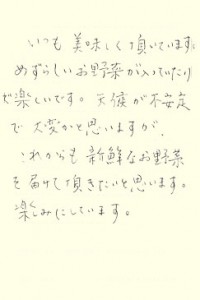 いつも美味しく頂いています。
めずらしいお野菜が入っていたり
で楽しいです。天候が不安定
で大変かと思いますが、
これからも新鮮なお野菜
を届けて頂きたいと思います。
楽しみにしています。